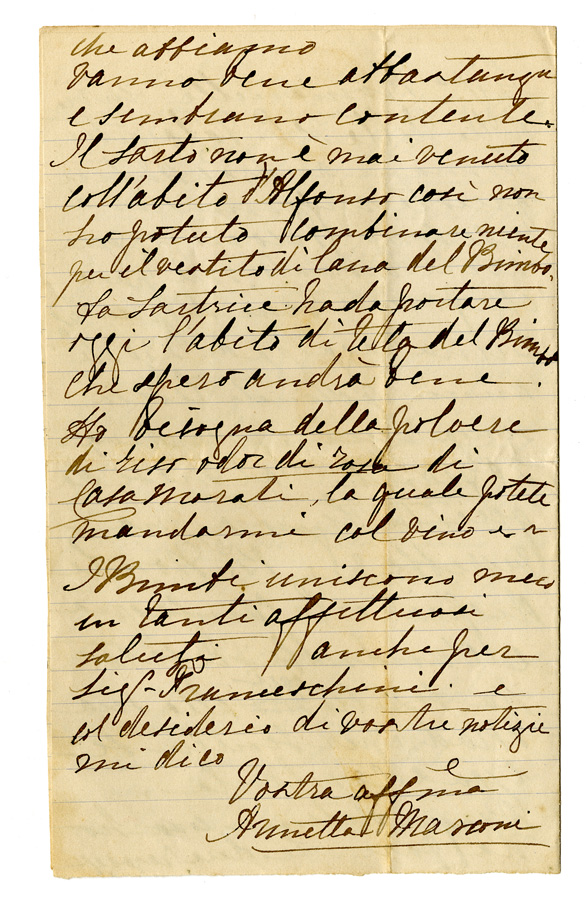 che abbiamo
vanno bene abbastanza
e sembrano contente.
Il sarto non è mai venuto
coll'abito d'Alfonso così non
ho potuto combinare niente
per il vestito di lana del Bimbo.
La Sartrice ha da portare
oggi l'abito di tela del Bimbo
che spero andrà bene.
Ho bisogna della polvere
di riso odor di rosa di
Casa Morati, la quale potete
mandarmi col vino
I Bimbi uniscono meco
in tanti affettuosi
saluti anche per
Sig. Franceschini e
col desiderio di vostre notizie
mi dico
Vostra affma
Annetta Marconi